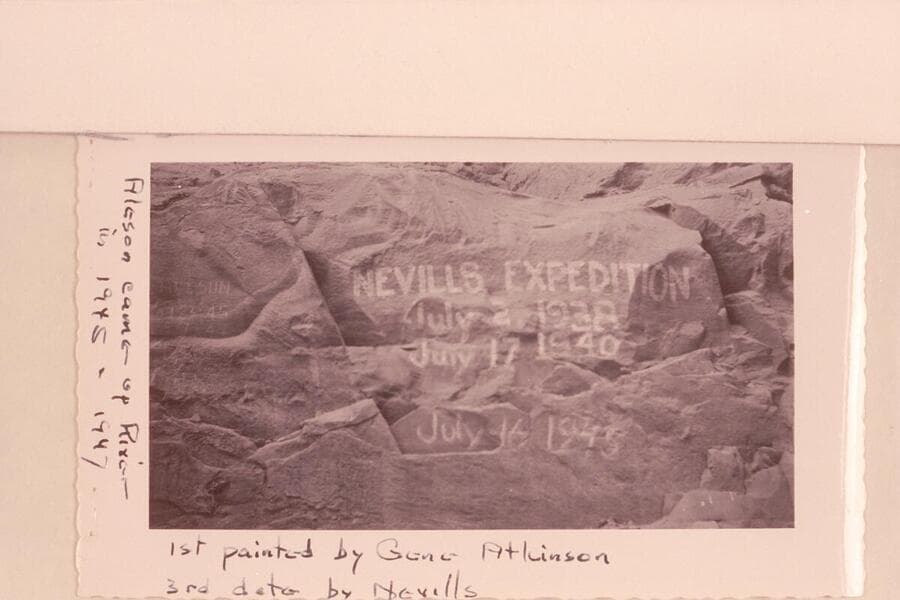 Aleson came up River
in 1945 & 1947
NEVILLS EXPEDITION
July 2 1938
July 17 1940
July 16 1945
1st painted by Gene Atkinson
3rd date by Nevills